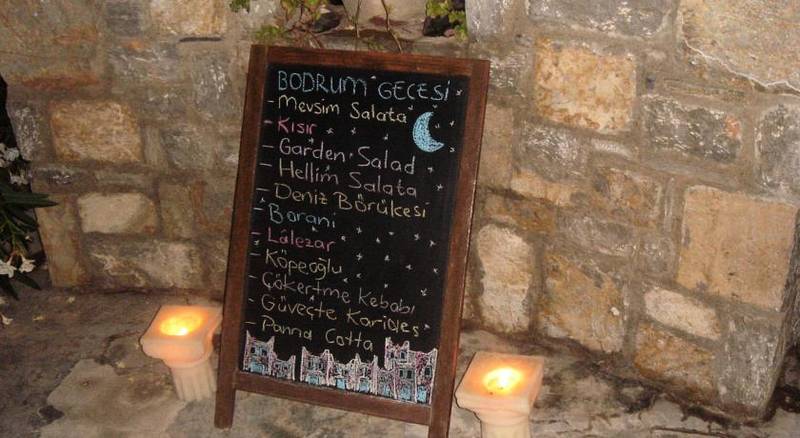 BODRUM GECESİ
- Mevsim Salata
- Kısır
- Garden Salad
- Hellim Salata
- Deniz Börülcesi
- Borani
- Lâlezar
- Köpeoğlu
- Çökertme Kebabı
- Güveçte Karides
- Panna Cotta